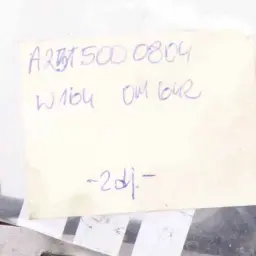 A2515000804
W164 OM 642
-2dj.-